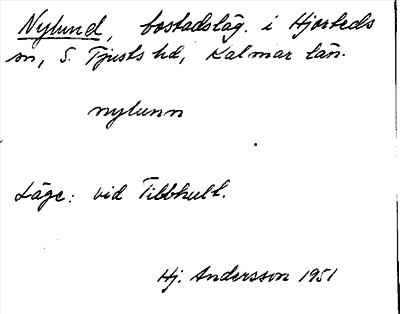 Nylund, bostadsläg. i Hjorteds
sn, S. Tjusts hd, Kalmar län.
nylunn
Läge: vid Tibbhult.
Hj. Andersson 1951